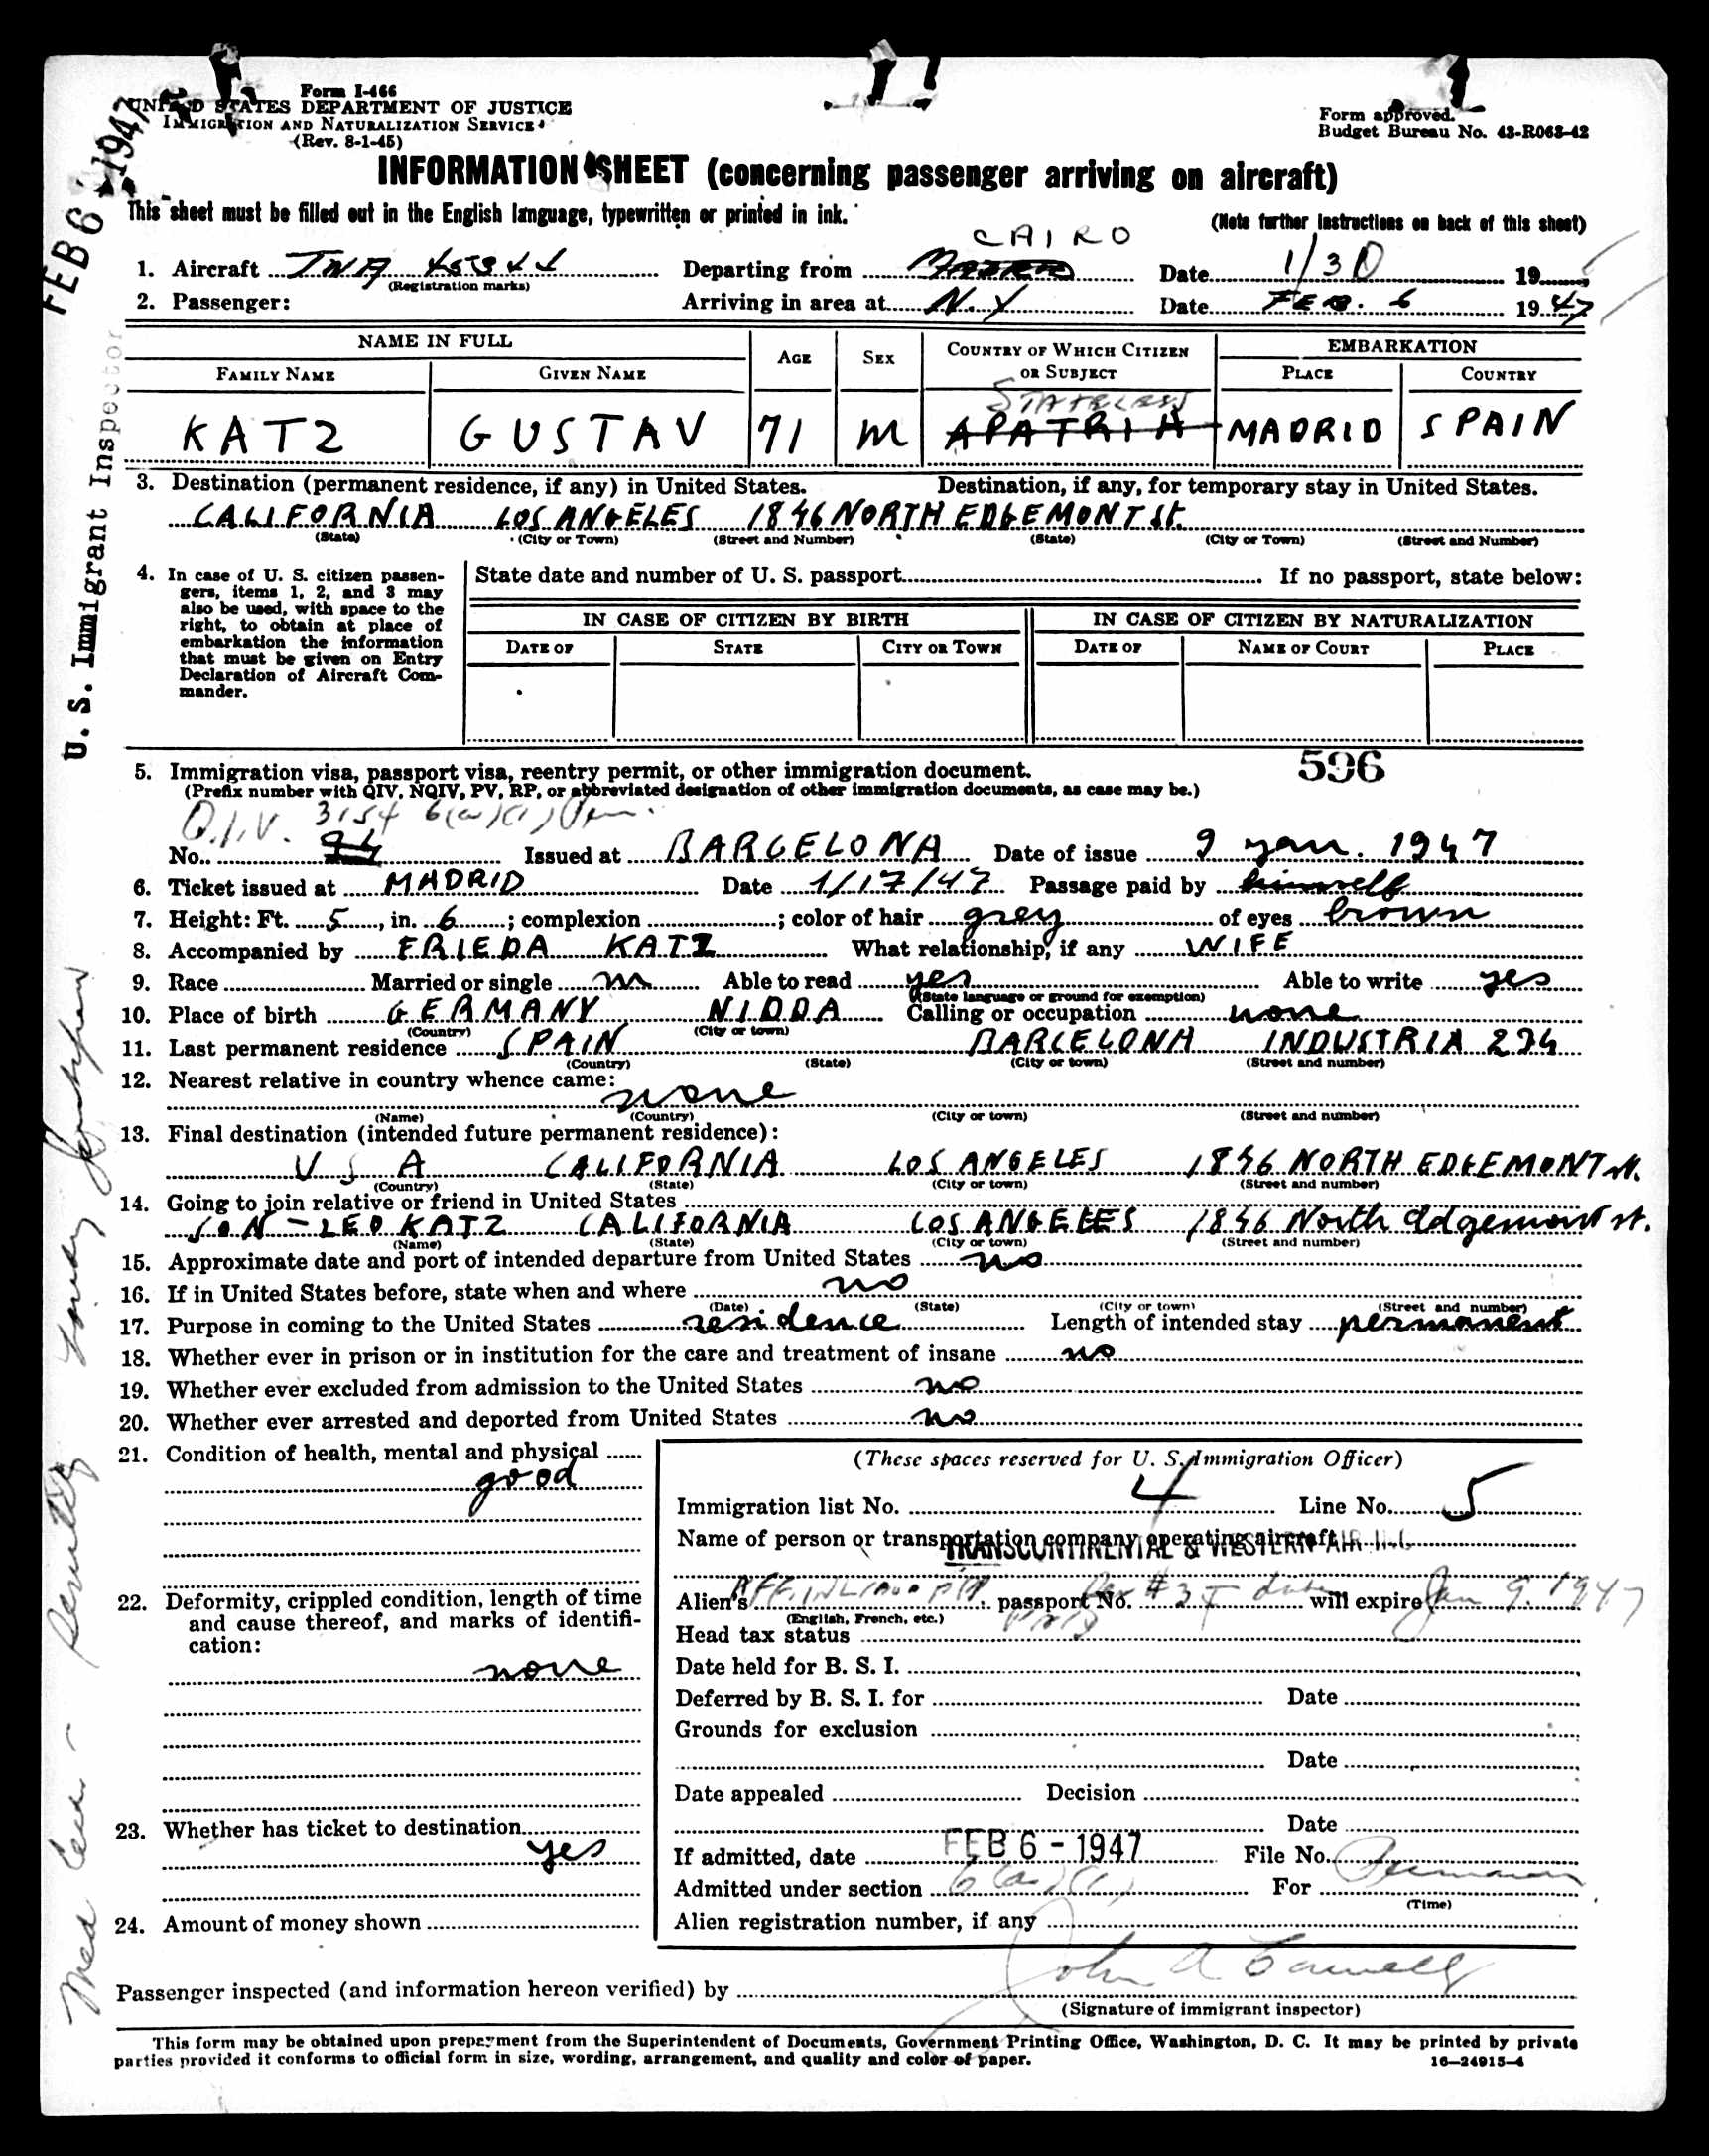 Form I-466
UNITED STATES DEPARTMENT OF JUSTICE
IMMIGRATION AND NATURALIZATION SERVICE
(Rev. 8-1-45)
Form approved.
Budget Bureau No. 43-R063-42
INFORMATION SHEET (concerning passenger arriving on aircraft)
This sheet must be filled out in the English language, typewritten or printed in ink.
(Note further instructions on back of this sheet)
FEB 6 1947
U. S. Immigrant Inspector
CAIRO
1. Aircraft TWA Departing from Date 1/30 19
(Registration marks)
2. Passenger: Arriving in area at N.Y Date FEB. 6 1947
NAME IN FULL AGE SEX COUNTRY OF WHICH CITIZEN OR SUBJECT EMBARKATION
FAMILY NAME GIVEN NAME PLACE COUNTRY
STATELESS
KATZ GUSTAV 71 M APATRIA MADRID SPAIN
3. Destination (permanent residence, if any) in United States. Destination, if any, for temporary stay in United States.
CALIFORNIA LOS ANGELES 1846 NORTH EDGEMONT St.
(State) (City or Town) (Street and Number) (State) (City or Town) (Street and Number)
4. In case of U. S. citizen passen-
gers, items 1, 2, and 3 may
also be used, with space to the
right, to obtain at place of
embarkation the information
that must be given on Entry
Declaration of Aircraft Com-
mander.
State date and number of U. S. passport If no passport, state below:
IN CASE OF CITIZEN BY BIRTH IN CASE OF CITIZEN BY NATURALIZATION
DATE OF STATE CITY OR TOWN DATE OF NAME OF COURT PLACE
596
5. Immigration visa, passport visa, reentry permit, or other immigration document.
(Prefix number with QIV, NQIV, PV, RP, or abbreviated designation of other immigration documents, as case may be.)
Q.I.V. 3154 6(a)(1)
No. Issued at BARCELONA Date of issue 9 yan. 1947
6. Ticket issued at MADRID Date 1/17/47 Passage paid by himself
7. Height: Ft. 5, in. 6; complexion ; color of hair grey of eyes brown
8. Accompanied by FRIEDA KATZ What relationship, if any WIFE
9. Race Married or single m Able to read yes Able to write yes
(State language or ground for exemption)
10. Place of birth GERMANY NIDDA Calling or occupation none
(Country) (City or town)
11. Last permanent residence SPAIN BARCELONA INDUSTRIA 234
(Country) (State) (City or town) (Street and number)
12. Nearest relative in country whence came:
none
(Name) (Country) (City or town) (Street and number)
13. Final destination (intended future permanent residence):
U S A CALIFORNIA LOS ANGELES 1846 NORTH EDGEMONT st.
(Country) (State) (City or town) (Street and number)
14. Going to join relative or friend in United States
SON - LEO KATZ CALIFORNIA LOS ANGELES 1846 North Edgemont st.
(Name) (State) (City or town) (Street and number)
15. Approximate date and port of intended departure from United States no
16. If in United States before, state when and where no
(Date) (State) (City or town) (Street and number)
17. Purpose in coming to the United States residence Length of intended stay permanent
18. Whether ever in prison or in institution for the care and treatment of insane no
19. Whether ever excluded from admission to the United States no
20. Whether ever arrested and deported from United States no
21. Condition of health, mental and physical
good
22. Deformity, crippled condition, length of time
and cause thereof, and marks of identifi-
cation:
none
23. Whether has ticket to destination
yes
24. Amount of money shown
(These spaces reserved for U. S. Immigration Officer)
Immigration list No. 4 Line No. 5
Name of person or transportation company operating aircraft
TRANSCONTINENTAL & WESTERN AIR
Alien's passport No. will expire Jan 9. 1947
(English, French, etc.)
Head tax status
Date held for B. S. I.
Deferred by B. S. I. for Date
Grounds for exclusion
Date
Date appealed Decision
Date
If admitted, date FEB 6 - 1947 File No.
Admitted under section 6(a)(1) For
(Time)
Alien registration number, if any
Passenger inspected (and information hereon verified) by John A
(Signature of immigrant inspector)
This form may be obtained upon prepayment from the Superintendent of Documents, Government Printing Office, Washington, D. C. It may be printed by private
parties provided it conforms to official form in size, wording, arrangement, and quality and color of paper.
16—24915-4